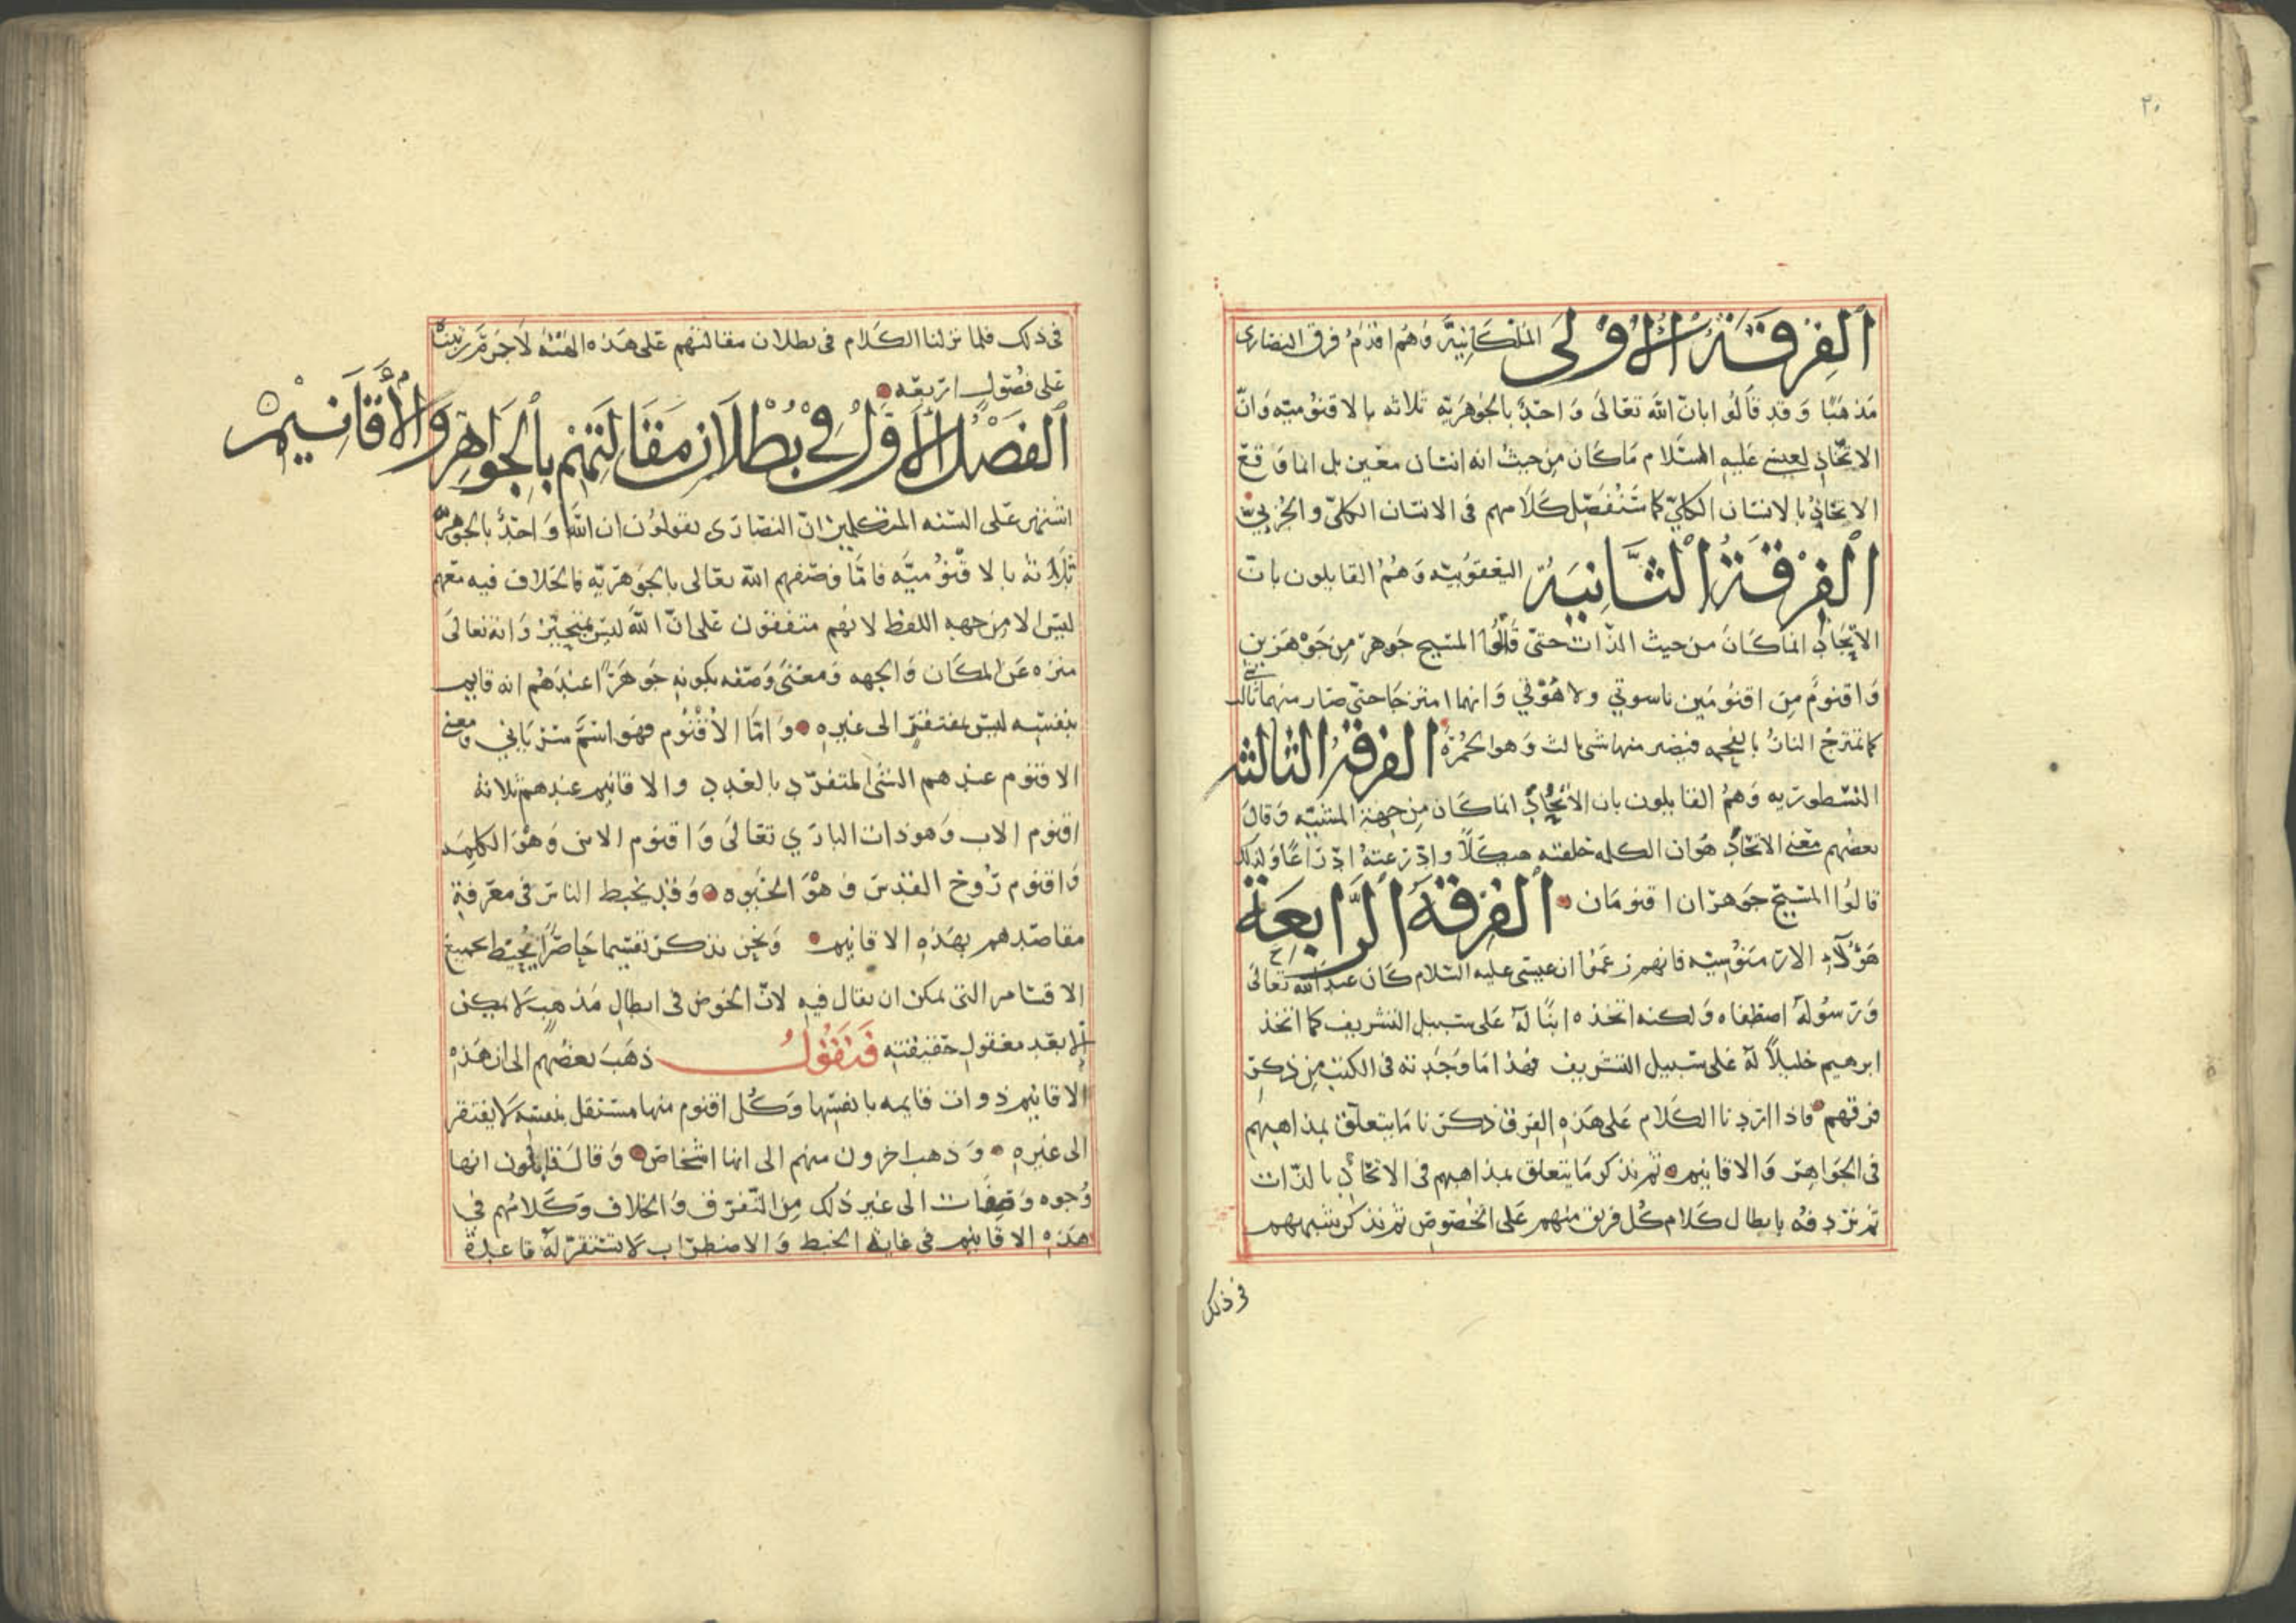 ٢٠
الفرقة الاولى الملكانية وهم اقدم فرق النصارى
مذهبًا وقد قالوا بان الله تعالى واحد بالجوهرية ثلاثه بالاقنوميه وان
الاتحاد لعيسى عليه السلام ما كان من حيث انه انسان معين بل انما وقع
الاتحاد بالانسان الكلي كما سنفصل كلامهم فى الانسان الكلي والجزيي
الفرقة الثانية اليعقوبيه وهم القايلون بان
الاتحاد انما كان من حيث الذات حتى قالوا المسيح جوهر من جوهرين
واقنوم من اقنومين ناسوتي ولاهوتي وانهما امتزجا حتى صار منهما شي ثالث
كما تمتزج النار بالفحمه فيصير منهما شى ثالث وهو الجمرة الفرقة الثالثة
النسطوريه وهم القايلون بان الاتحاد انما كان من جهة المشيه وقال
بعضهم معنى الاتحاد هو ان الكلمه خلقته هيكلاً وادرعته ادراعًا ولذلك
قالوا المسيح جوهران اقنومان الفرقة الرابعة
هؤلاء الارمنوسيه فانهم زعموا ان عيسى عليه السلام كان عبد الله تعالى
ورسوله اصطفاه ولكنه اتخذه ابنًا له على سبيل التشريف كما اتخذ
ابرهيم خليلاً له على سبيل التشريف فهذا ما وجدته فى الكتب من ذكر
فرقهم فاذا اردنا الكلام على هذه الفرق ذكرنا ما يتعلق بمذاهبهم
فى الجواهر والاقانيم ثم نذكر ما يتعلق بمذاهبهم فى الاتحاد بالذات
ثم نردفه بابطال كلام كل فريق منهم على الخصوص ثم نذكر شبههم
فى ذلك
فى ذلك فلما نزلنا الكلام فى بطلان مقالتهم على هذه الهيئه لاجرم رتبناه
على فصول اربعه
الفصل الاول في بطلان مقالتهم بالجواهر والأقانيم
اشتهر على السنه المتكلمين ان النصارى يقولون ان الله واحد بالجوهرية
ثلاثه بالاقنوميه فاما وصفهم الله تعالى بالجوهريه فالخلاف فيه معهم
ليس الا من جهه اللفظ لانهم متفقون على ان الله ليس بمتحيز وانه تعالى
منزه عن المكان والجهه ومعنى وصفه بكونه جوهرًا عندهم انه قايم
بنفسه ليس بمفتقر الى غيره واما الاقنوم فهو اسم سرياني ومعنى
الاقنوم عندهم الشى المتفرد بالعدد والاقانيم عندهم ثلاثه
اقنوم الاب وهو ذات الباري تعالى واقنوم الابن وهو الكلمه
واقنوم روح القدس وهو الحيوه وقد يخبط الناس فى معرفة
مقاصدهم بهذه الاقانيم ونحن نذكر تقسيما حاصرًا يحيط بجميع
الاقسام التى يمكن ان يقال فيه لان الخوض فى ابطال مذهب لا يمكن
الا بعد معقول حقيقته فنقول ذهب بعضهم الى ان هذه
الاقانيم ذوات قايمه بانفسها وكل اقنوم منها مستقل بنفسه لا يفتقر
الى غيره وذهب اخرون منهم الى انها اشخاص وقال قايلون انها
وجوه وصفات الى غير ذلك من التفرق والخلاف وكلامهم في
هذه الاقانيم فى غاية الخبط والاضطراب لا تستقر له قاعدة